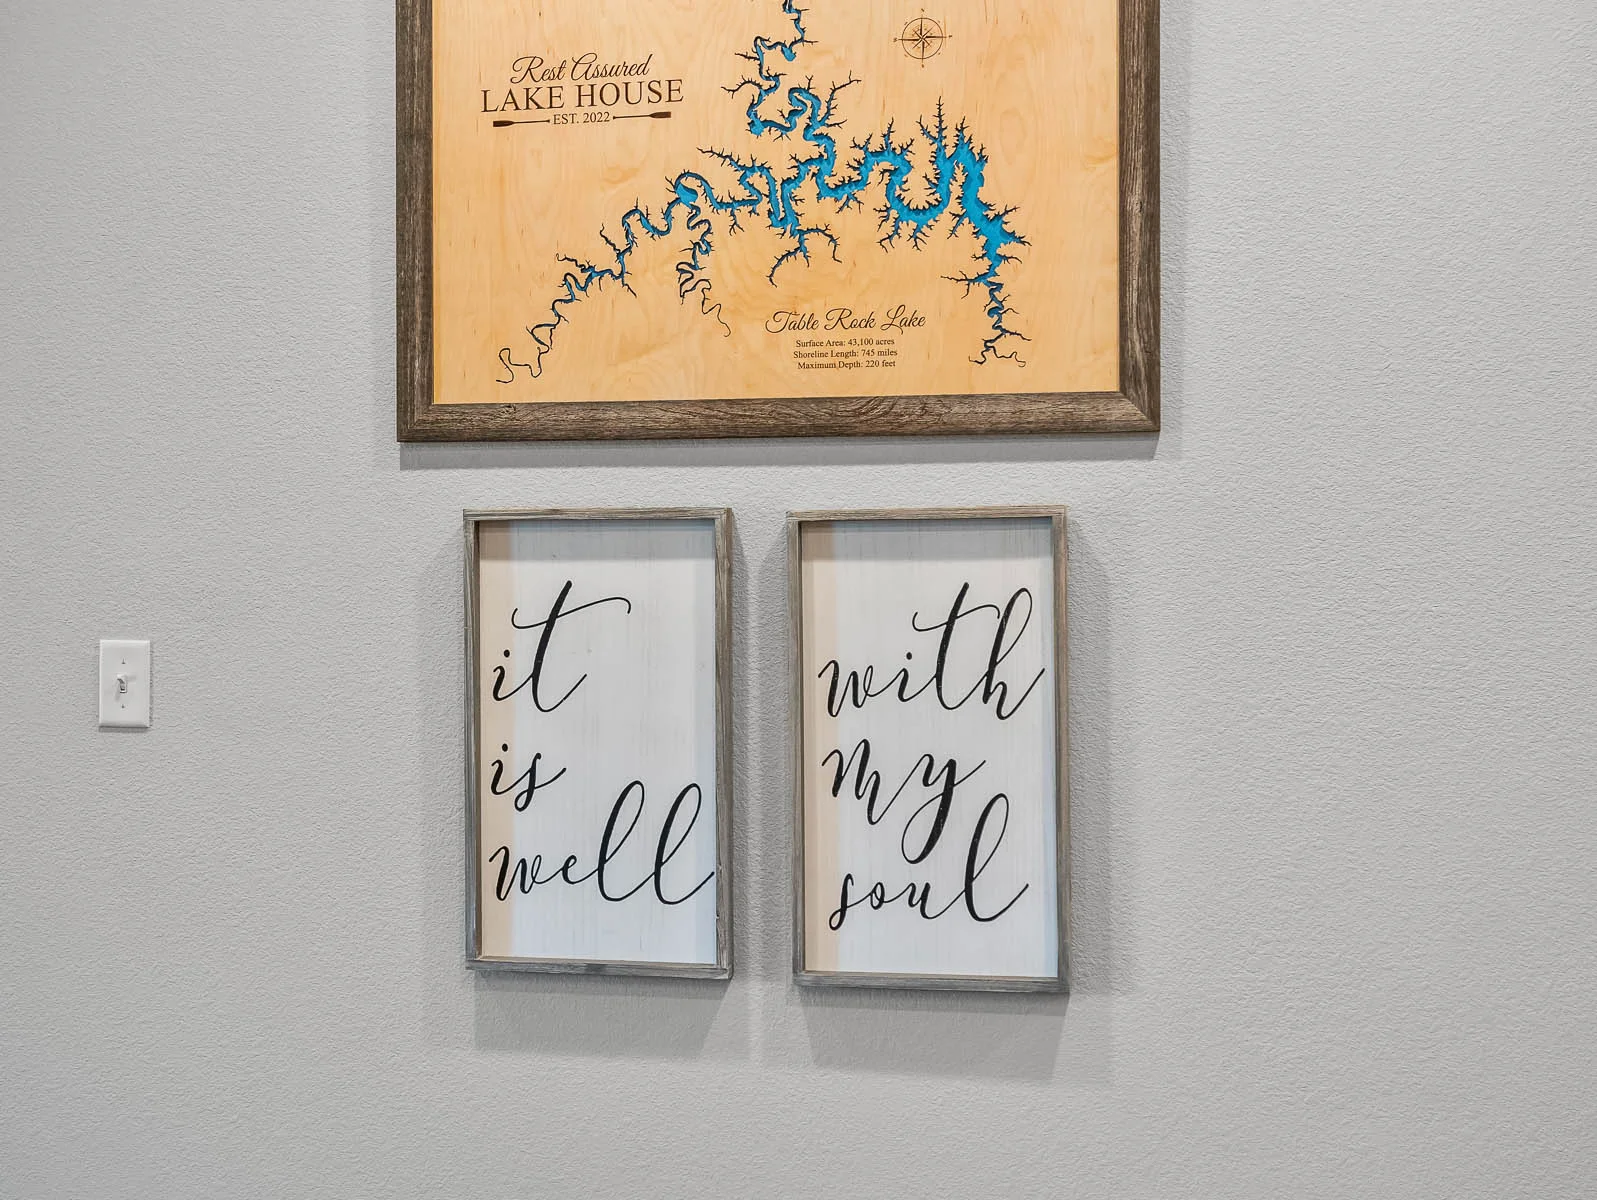 Rest Assured
LAKE HOUSE
EST. 2022
Table Rock Lake
Surface Area: 43,100 acres
Shoreline Length: 745 miles
Maximum Depth: 220 feet
it
is
well
with
my
soul